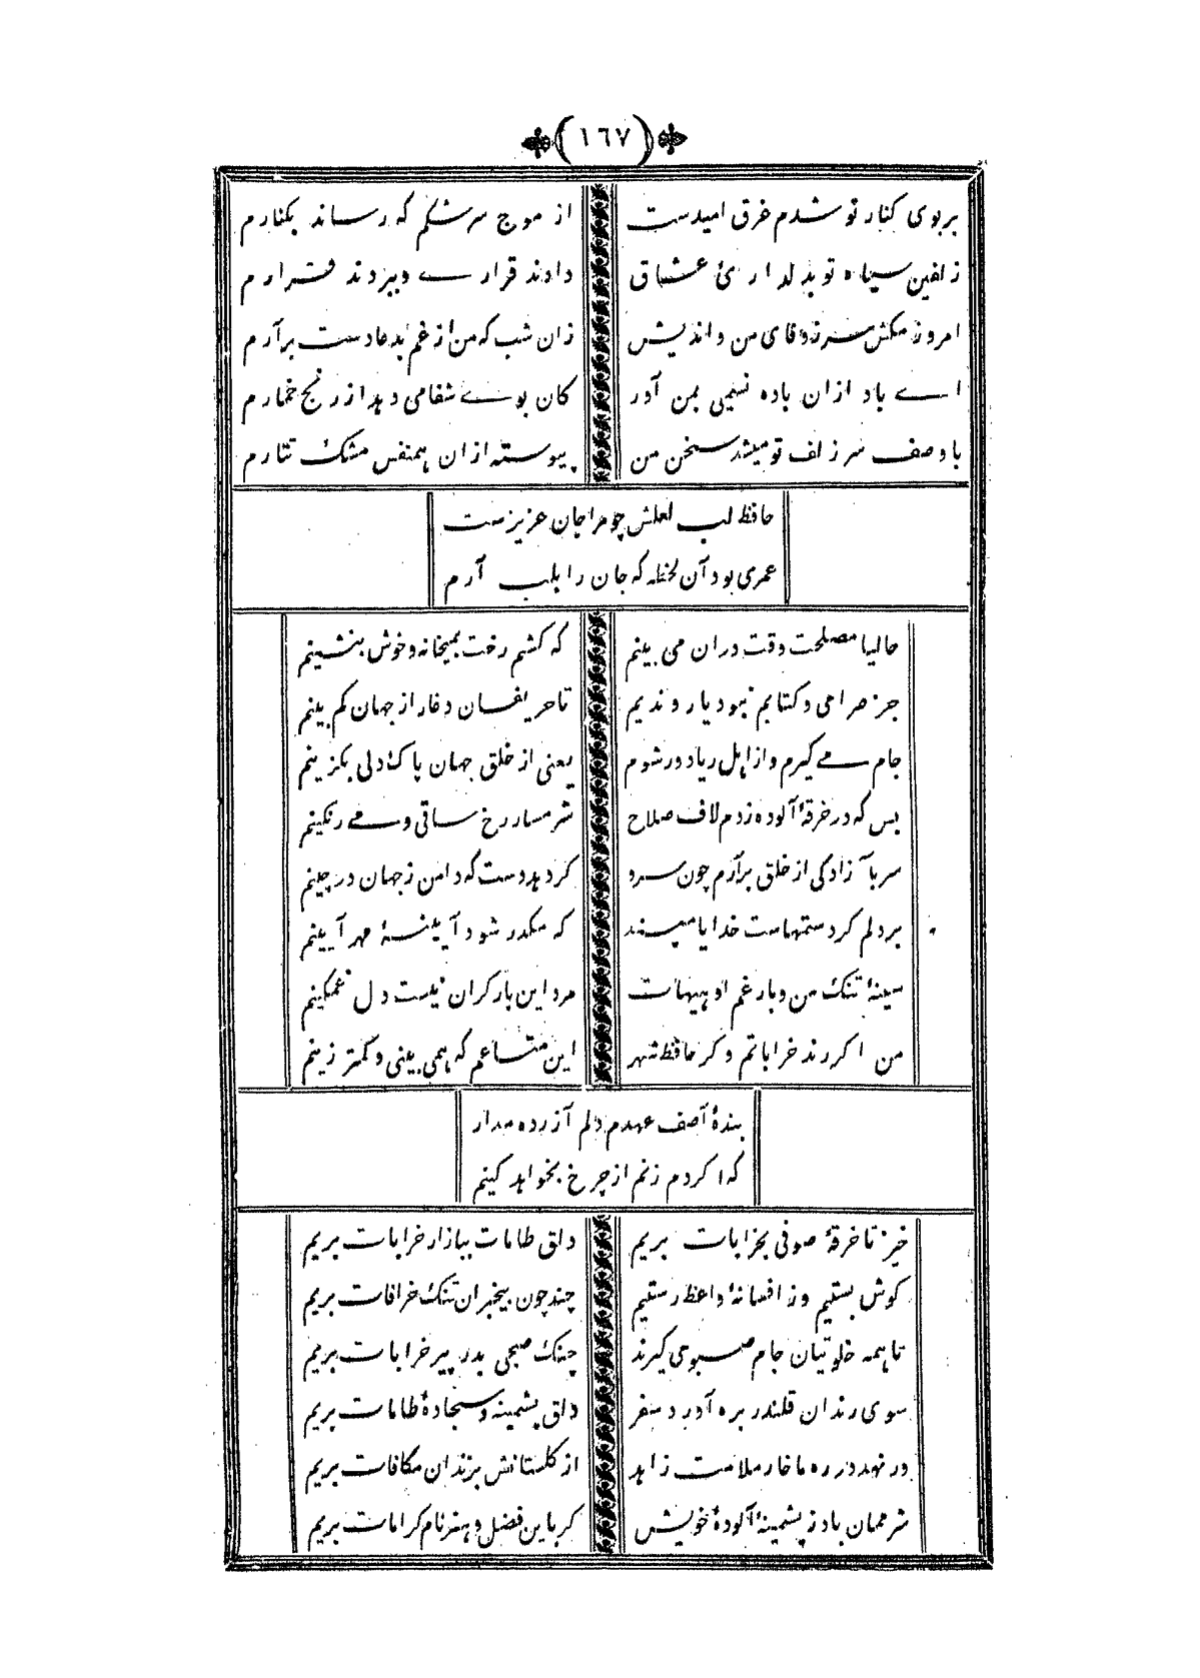 ١٦٧
بربوی کنار تو شدم غرق امیدست از موج سرشکم که رساند بکنارم
زلفین سیاه تو بدلداریٔ عشاق دادند قراری و ببردند قرارم
امروز مکش سر ز وفای من و اندیش زان شب که من از غم بدعا دست برآرم
ای باد ازان باده نسیمی بمن آور کان بوی شفا می دهد از رنج خمارم
با وصف سر زلف تو میشد سخن من پیوسته ازان همنفس مشک تتارم
حافظ لب لعلش چو مرا جان عزیزست
عمری بود آن لحظه که جان را بلب آرم
حالیا مصلحت وقت دران می بینم که کشم رخت بمیخانه و خوش بنشینم
جز صراحی و کتابم نبود یار و ندیم تا حریفان دغا را ز جهان کم بینم
جام می گیرم و از اهل ریا دور شوم یعنی از خلق جهان پاک دلی بگزینم
بس که در خرقهٔ آلوده زدم لاف صلاح شرمسار رخ ساقی و می رنگینم
سر بآزادگی از خلق برآرم چون سرو گر دهد دست که دامن ز جهان درچینم
بر دلم گرد ستمهاست خدایا مپسند که مکدر شود آیینهٔ مهر آیینم
سینهٔ تنگ من و بار غم او هیهات مرد این بار گران نیست دل غمگینم
من اگر رند خراباتم و گر حافظ شهر این متاعم که همی بینی و کمتر زینم
بندهٔ آصف عهدم دلم آزرده مدار
که اگر دم زنم از چرخ بخواهد کینم
خیز تا خرقهٔ صوفی بخرابات بریم دلق طامات ببازار خرابات بریم
گوش بستیم و ز افسانهٔ واعظ رستیم چند چون بیخبران ننگ خرافات بریم
تا همه خلوتیان جام صبوحی گیرند چنگ صبحی بدر پیر خرابات بریم
سوی رندان قلندر بره آورد سفر دلق پشمینه و سجادهٔ طامات بریم
ور نهد در ره ما خار ملامت زاهد از گلستانش بزندان مکافات بریم
شرممان باد ز پشمینهٔ آلودهٔ خویش گر باین فضل و هنر نام کرامات بریم